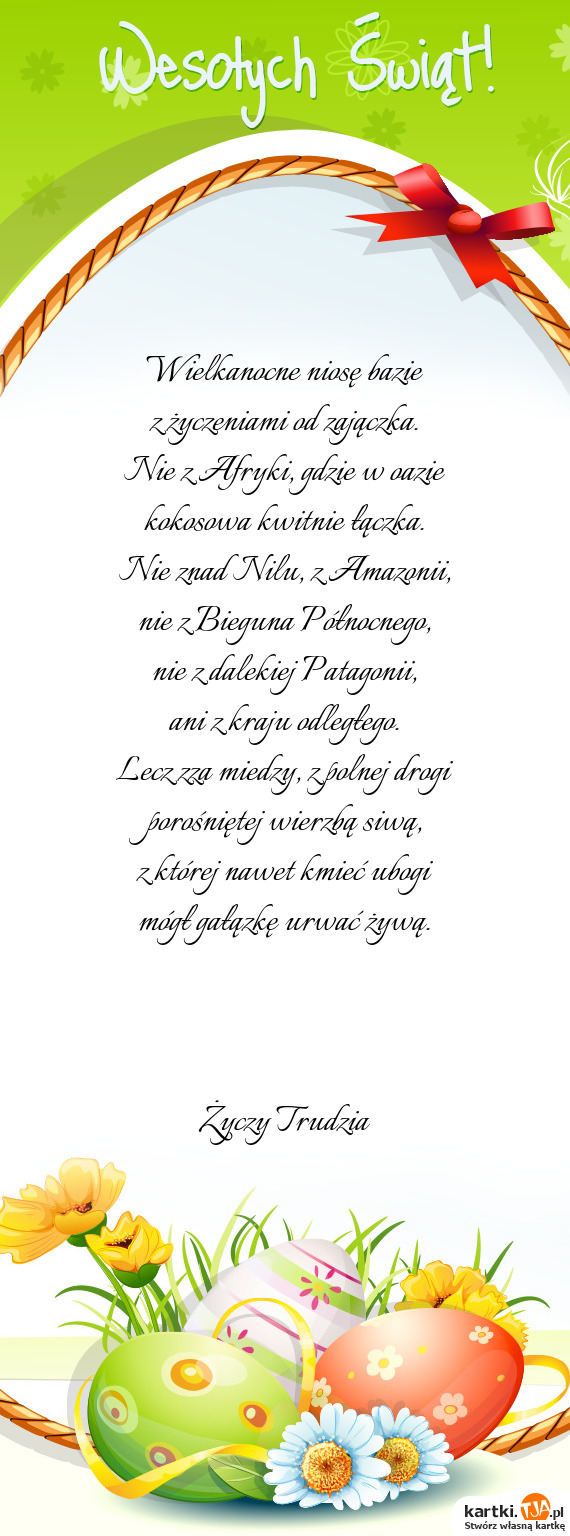 Wesołych Świąt!
Wielkanocne niosę bazie
z życzeniami od zajączka.
Nie z Afryki, gdzie w oazie
kokosowa kwitnie łączka.
Nie znad Nilu, z Amazonii,
nie z Bieguna Północnego,
nie z dalekiej Patagonii,
ani z kraju odległego.
Lecz zza miedzy, z polnej drogi
porośniętej wierzbą siwą,
z której nawet kmieć ubogi
mógł gałązkę urwać żywą.
Życzy Trudzia
kartki.TJA.pl
Stwórz własną kartkę